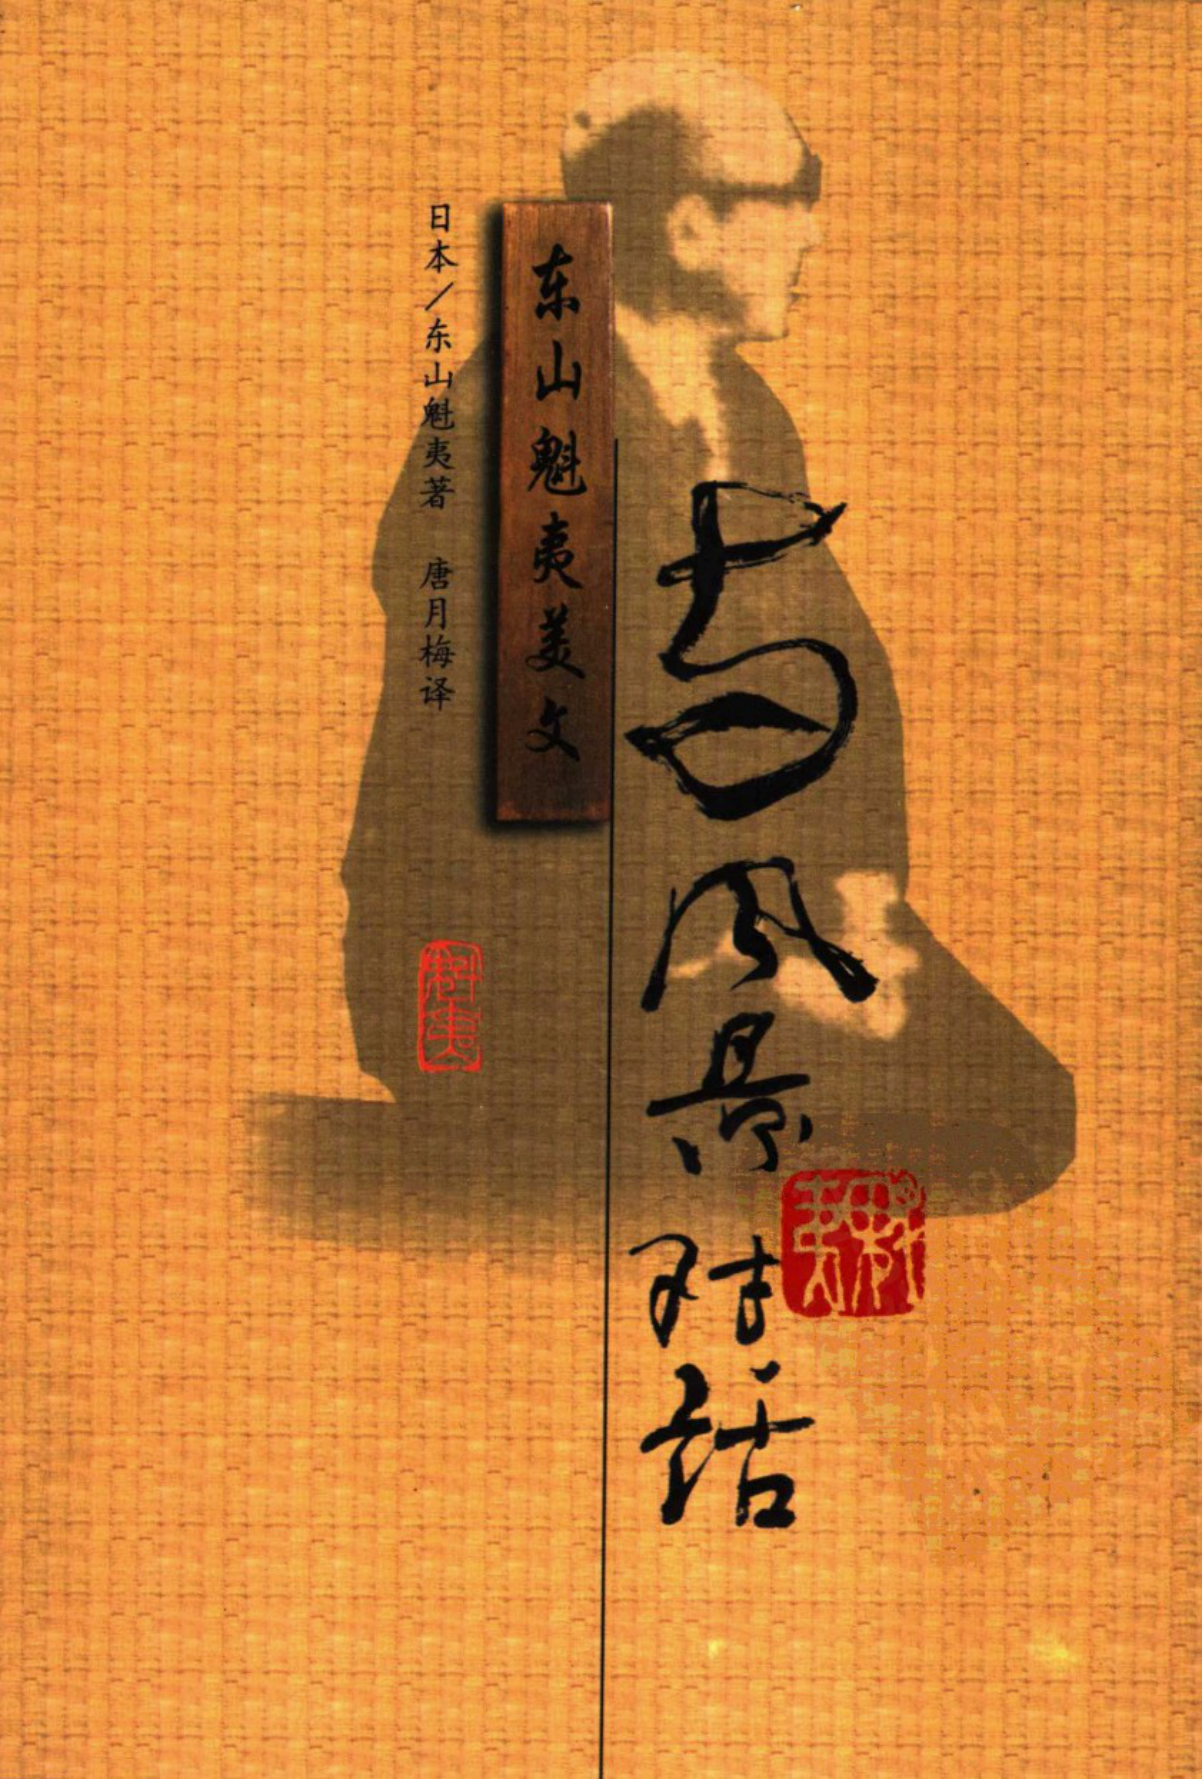 与风景对话
东山魁夷美文
日本／东山魁夷著 唐月梅译
魁夷